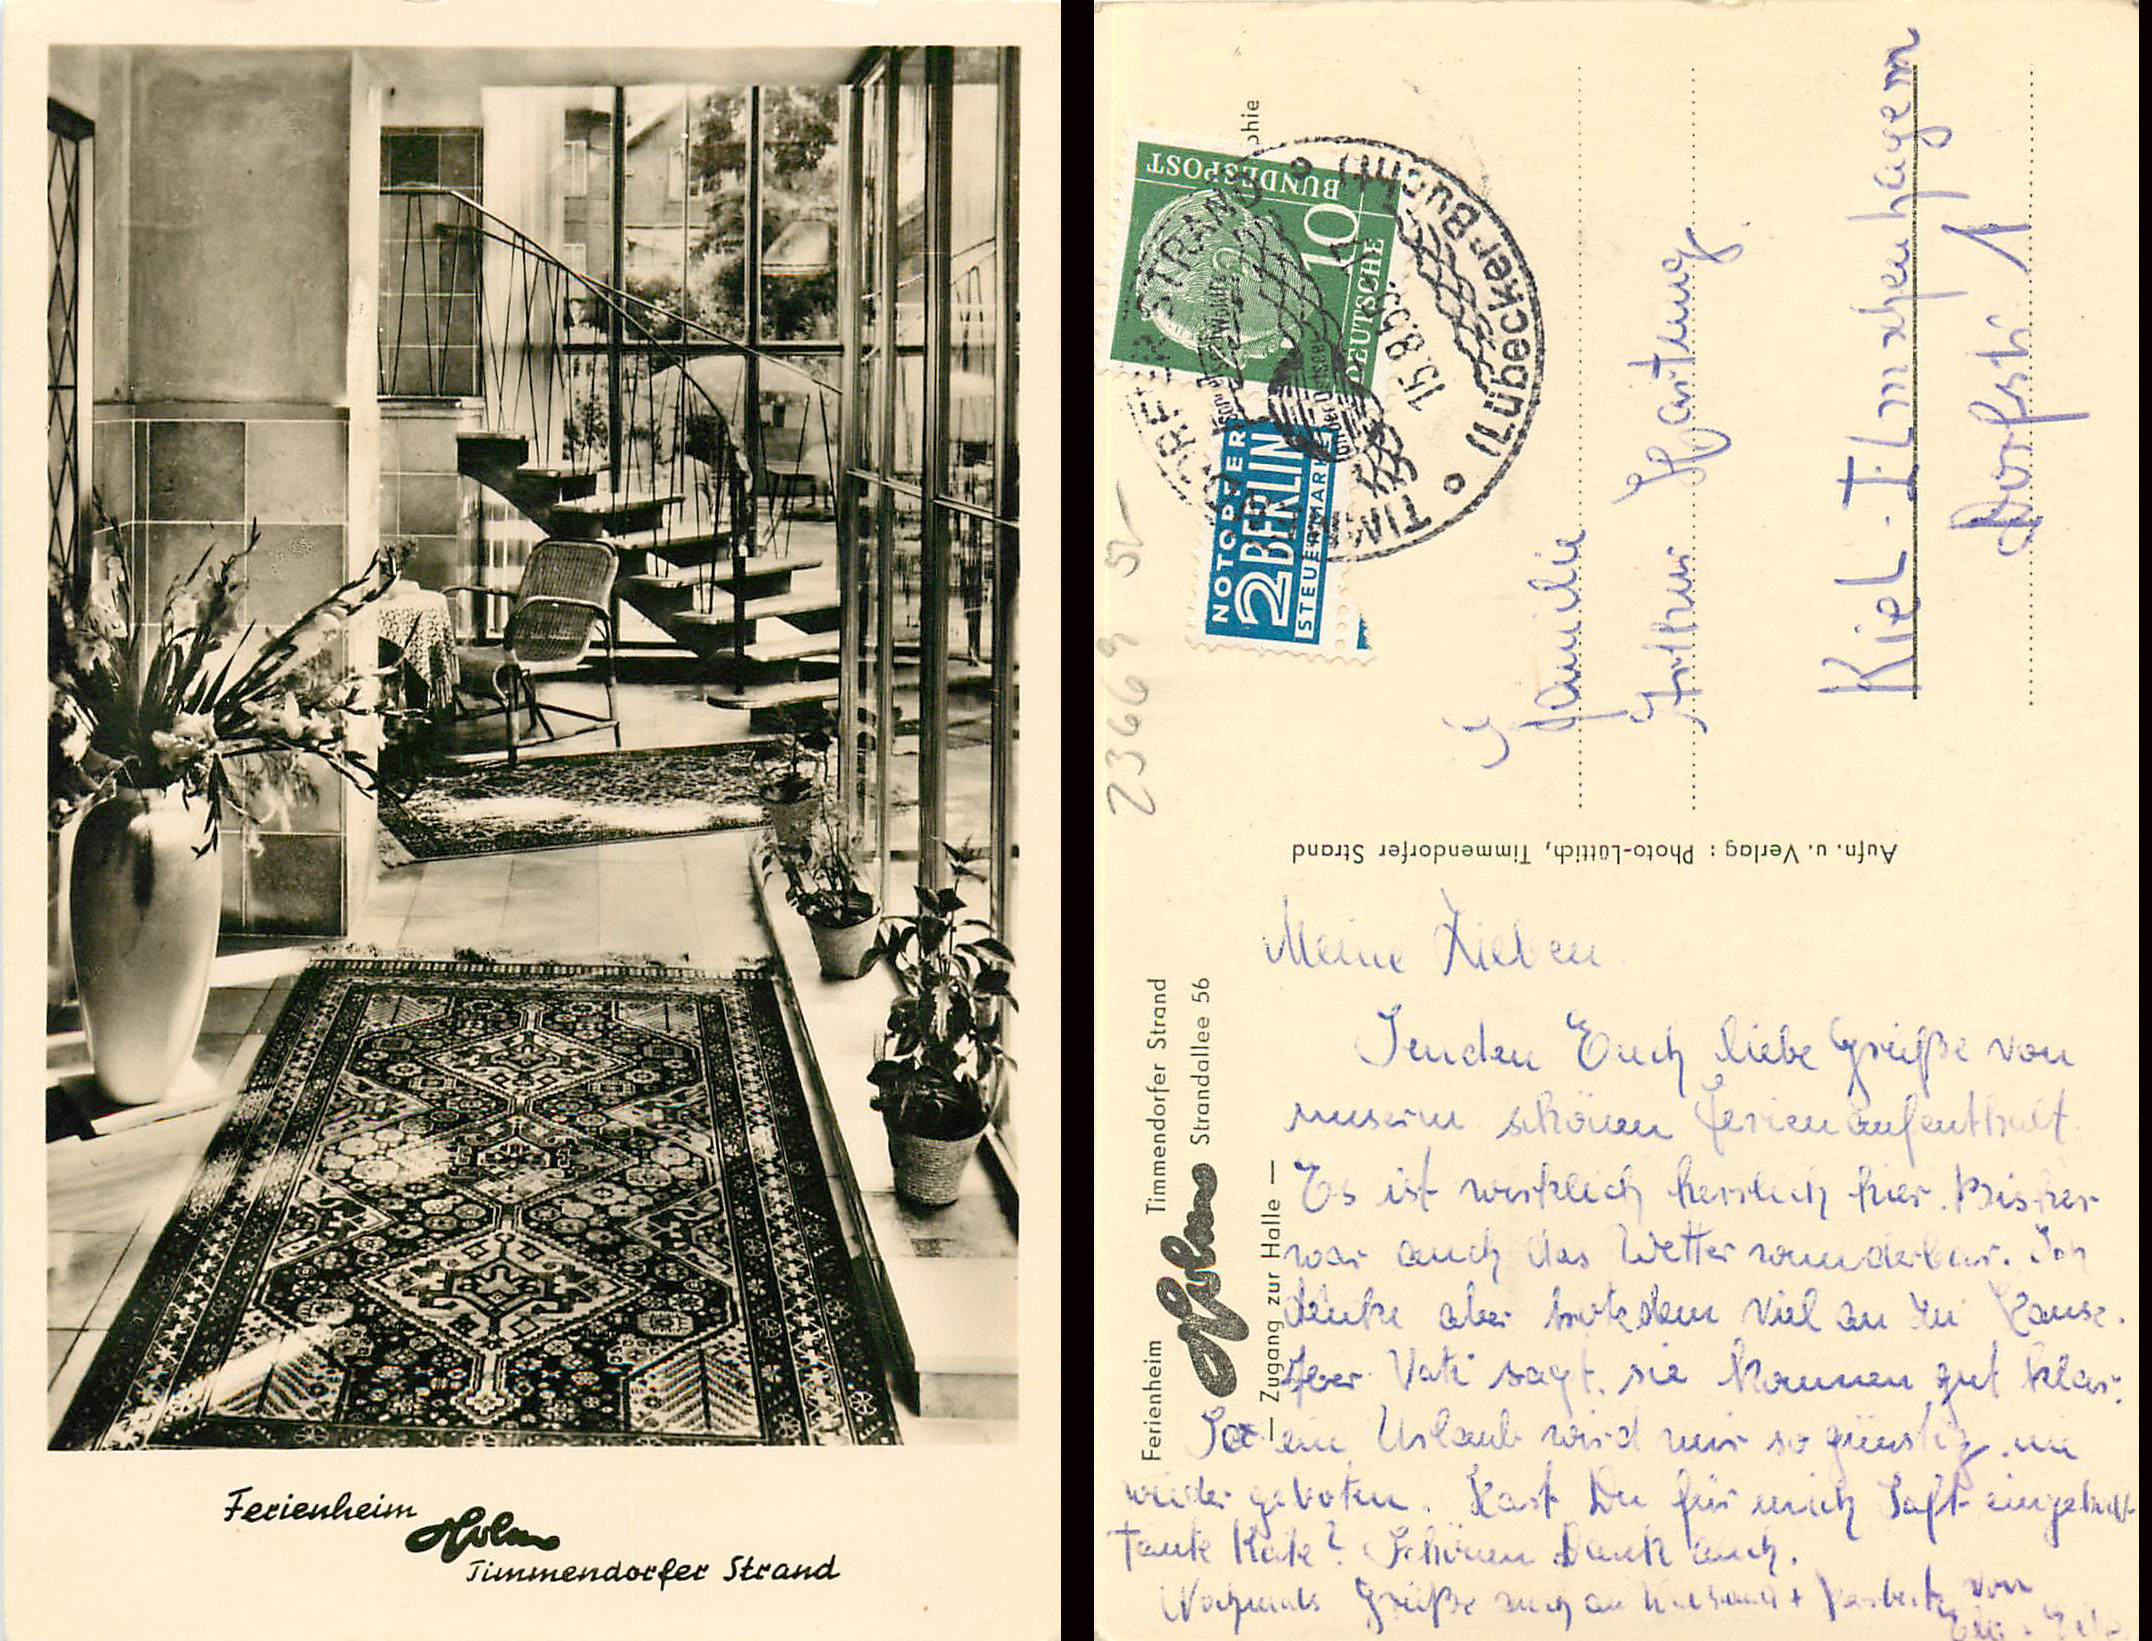 Ferienheim
Holm
Timmendorfer Strand
Ferienheim Timmendorfer Strand
Holm Strandallee 56
— Zugang zur Halle —
phie
DEUTSCHE
BUNDESPOST
10
NOTOPFER
2 BERLIN
STEUERMARKE
TIMMENDORFER STRAND
(Lübecker Bucht)
15.8.55.
23669 51
Familie
Arthur Hartung
Kiel-Elmschenhagen
Dorfstr. 1
Aufn. u. Verlag: Photo-Lüttich, Timmendorfer Strand
Meine Lieben.
Senden Euch liebe Grüße von
unserm schönen Ferienaufenthalt.
Es ist wirklich herrlich hier. Bisher
war auch das Wetter wunderbar. Ich
denke aber trotzdem viel an zu Hause.
Aber Vati sagt, sie kommen gut klar.
So ein Urlaub wird mir so günstig nie
wieder geboten. Hast Du für mich Saft eingekocht
Tante Käte? Schönen Dank auch.
Nochmals Grüße auch an + von